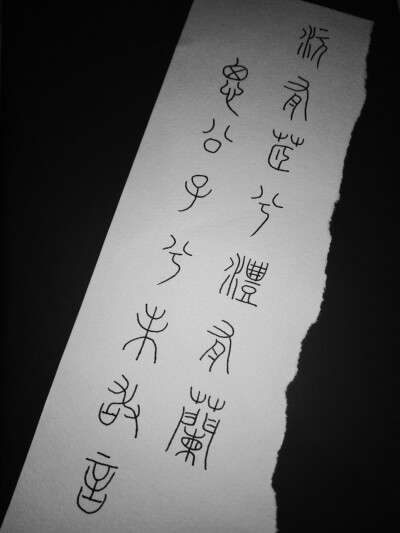 沅有茝兮澧有蘭
思公子兮未敢言